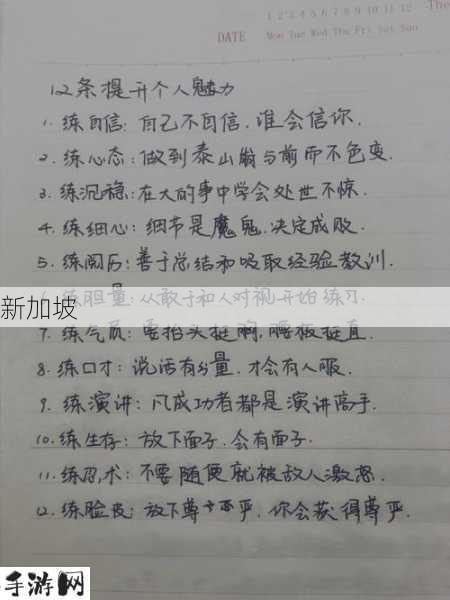 1 2 3 4 5 6 7 8 9 10 11 12 The
DATE Mon Tue Wed Thu Fri Sat Sun
12条提升个人魅力
1. 练自信: 自己不自信, 谁会信你.
2. 练心态: 做到泰山崩与前而不色变.
3. 练沉稳: 在大的事中学会处世不惊.
4. 练细心: 细节是魔鬼, 决定成败.
5. 练阅历: 善于总结和吸取经验教训.
练胆量: 从敢于和人对视开始练习.
新加坡
7. 练气质: 要抬头挺胸, 腰板挺直
8. 练口才: 说话有分量, 才会有人服.
9. 练演讲: 凡成功者都是演讲高手.
10. 练生存: 放下面子, 会有面子.
11. 练忍术: 不要随便就被敌人激怒.
12. 练脸皮: 放下尊严, 你会获得尊严.
手游网